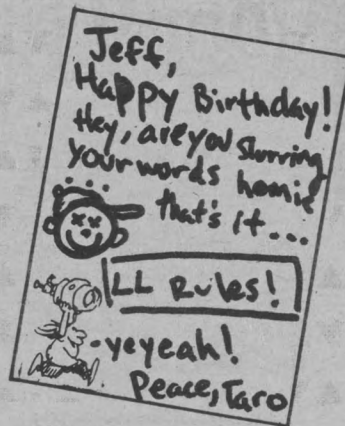 Jeff,
Happy Birthday!
Hey, are you slurring
your words homie
that's it...
LL Rules!
-yeyeah!
Peace, Taro